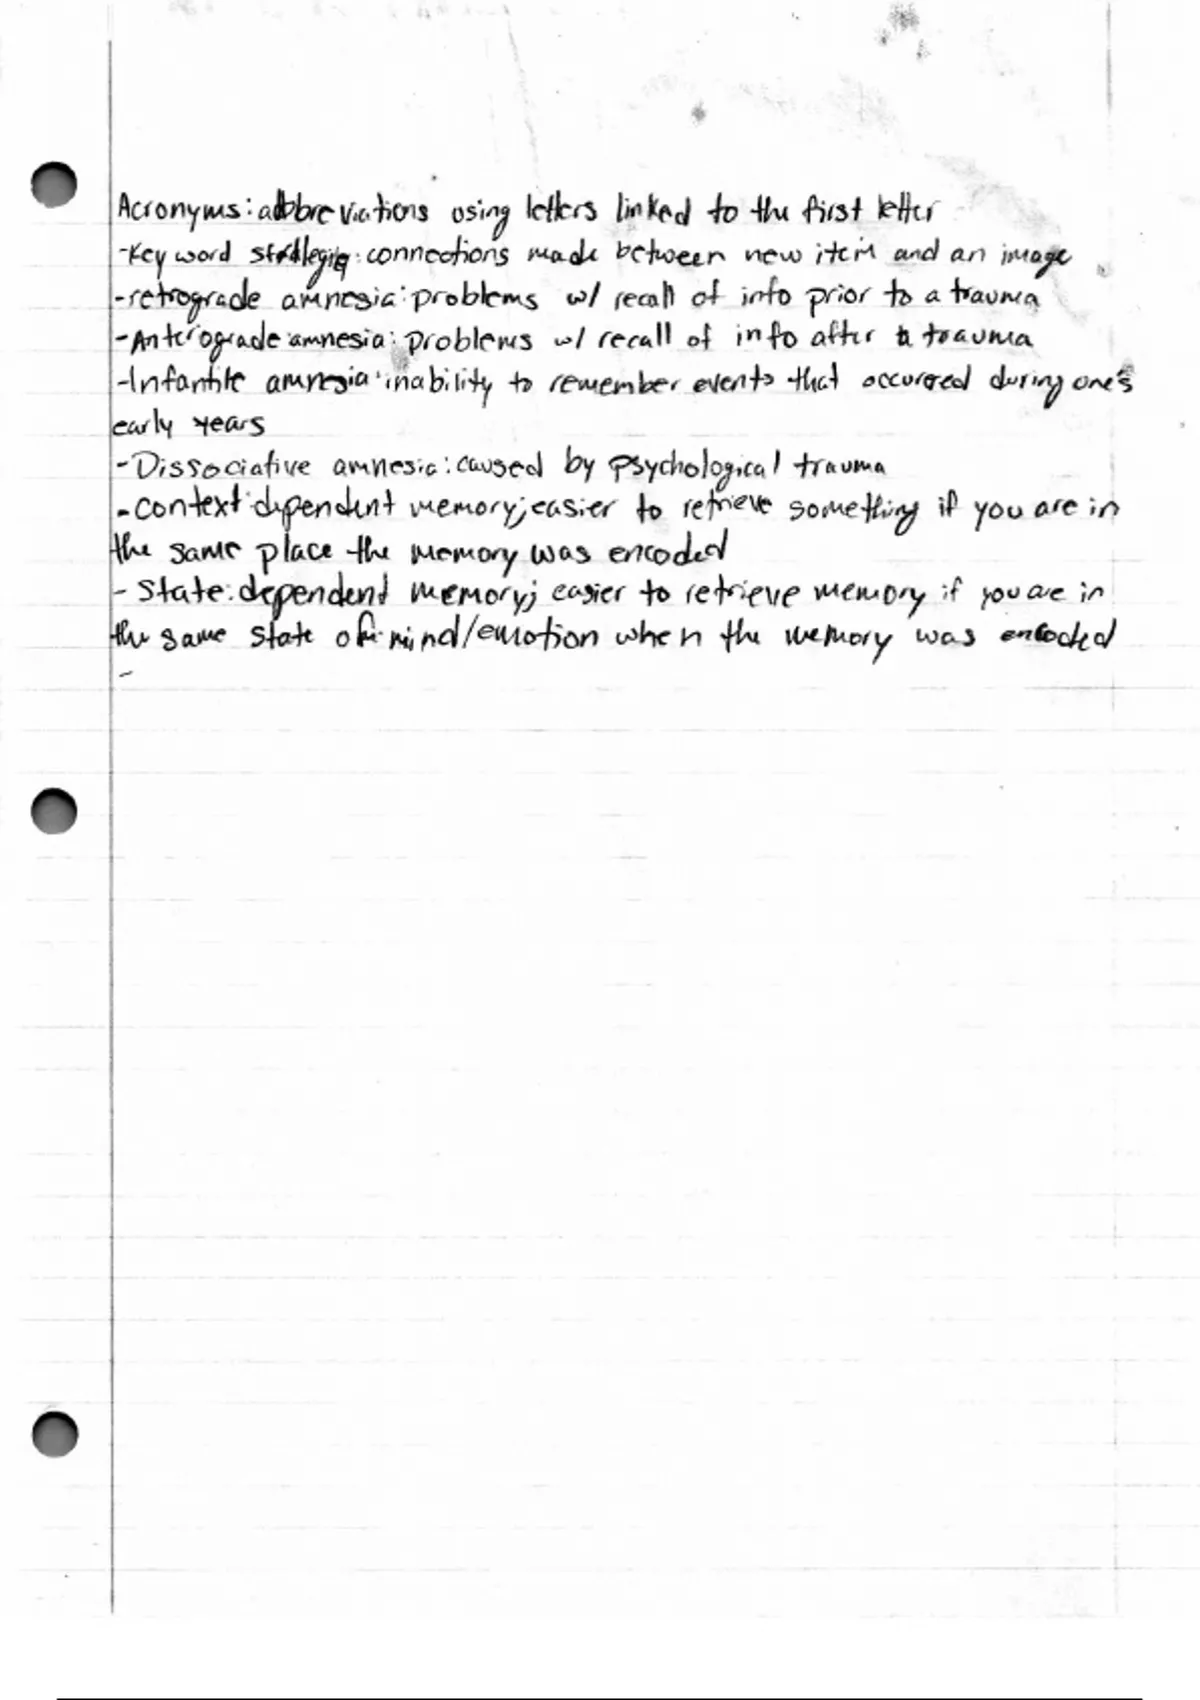 Acronyms: abbreviations using letters linked to the first letter
-Key word strategie: connections made between new item and an image
-retrograde amnesia: problems w/ recall of info prior to a trauma
-Anterograde amnesia: problems w/ recall of info after a trauma
-Infantile amnesia: inability to remember events that occurred during one's
early years
-Dissociative amnesia: caused by psychological trauma
-context-dependent memory; easier to retrieve something if you are in
the same place the memory was encoded
- State-dependend memory; easier to retrieve memory if you are in
the same state of mind/emotion when the memory was encoded
-